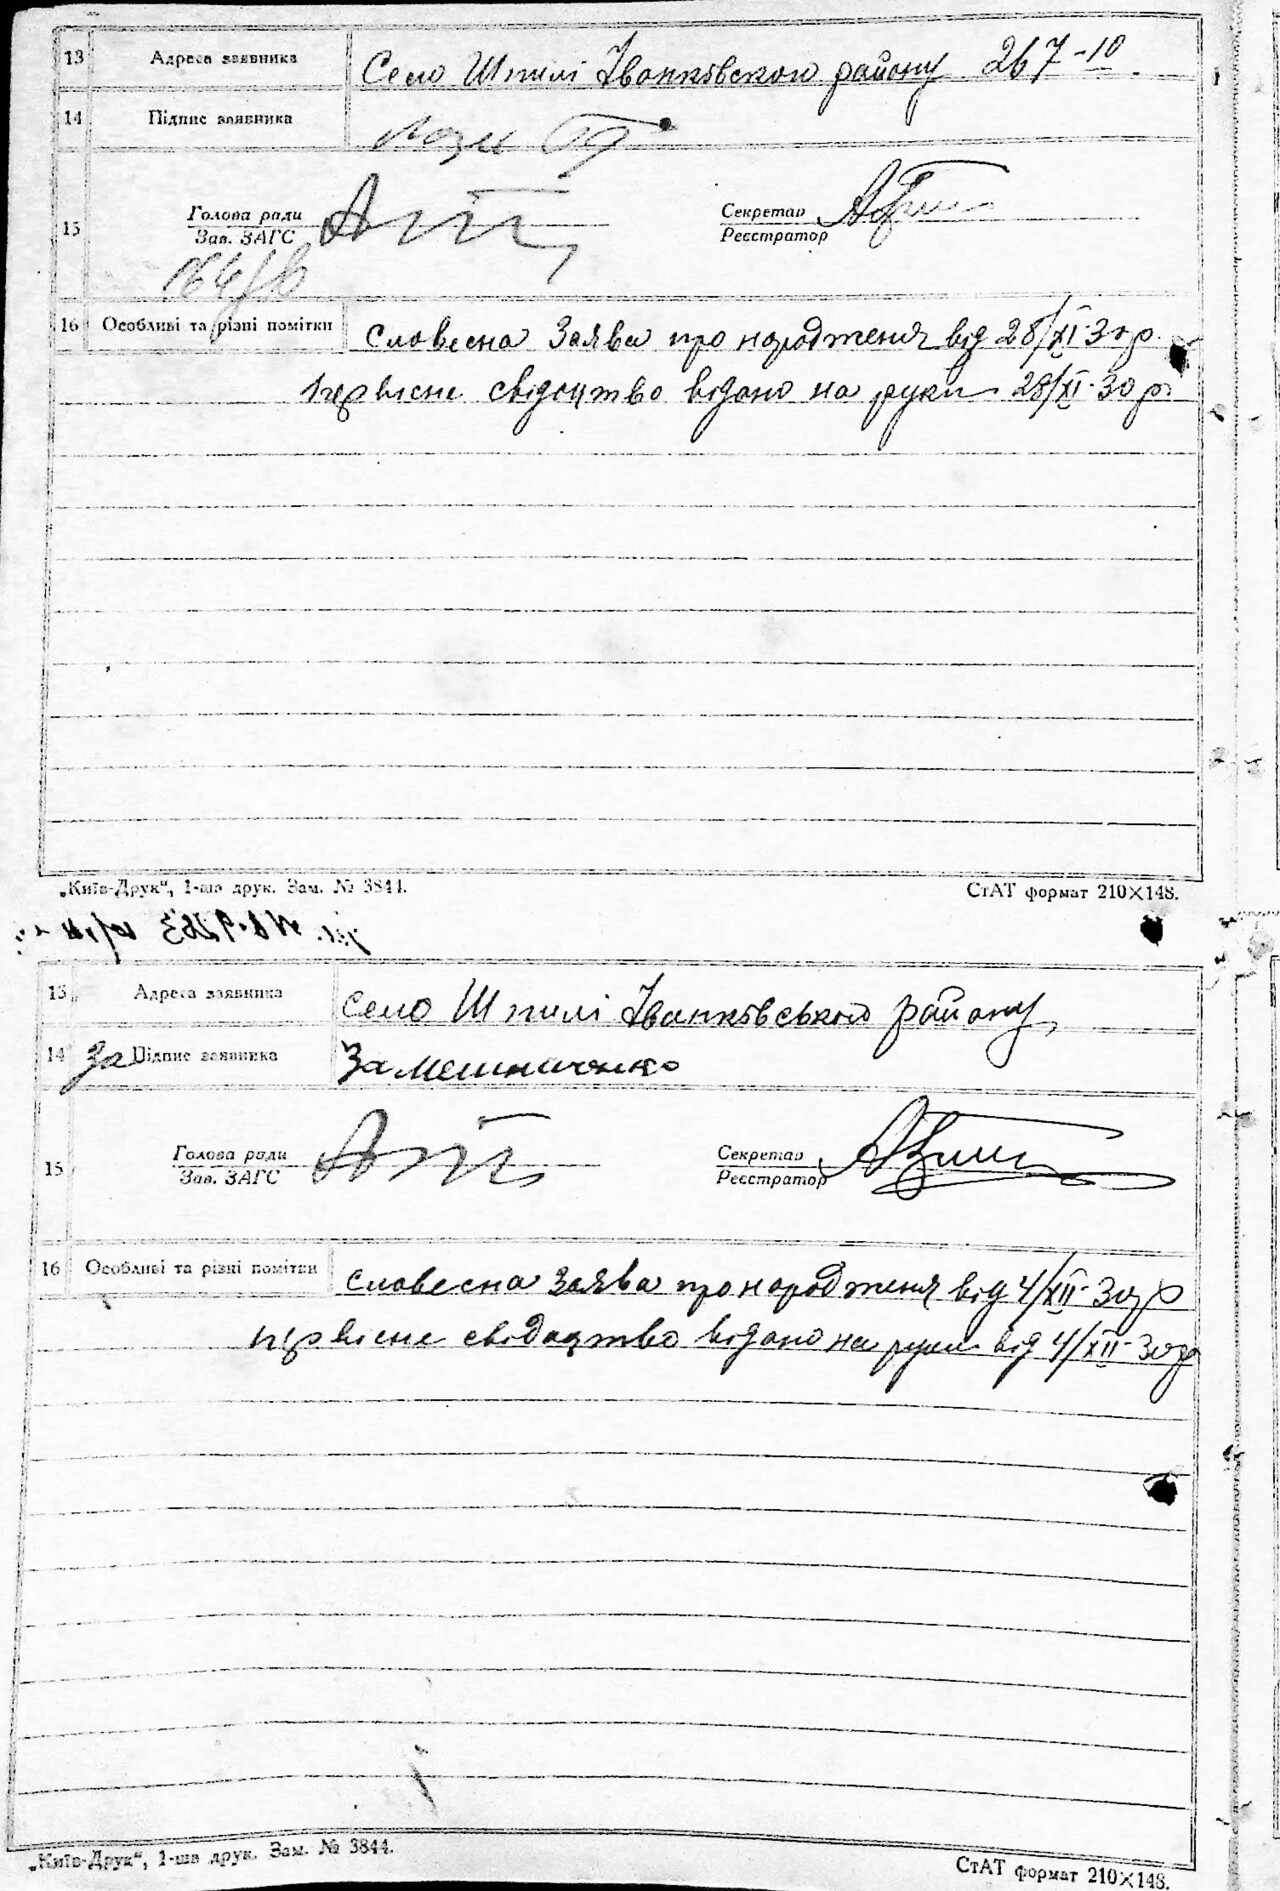 13 Адреса заявника Село Шпилі Іванківского району 267-10.
14 Підпис заявника
15 Голова ради
Зав. ЗАГС
Секретар
Реєстратор
16 Особливі та різні помітки Словесна Заява про народженя від 28/XI-30р.
первісне свідоцтво відано на руки 28/XI-30р.
„Київ-Друк“, 1-ша друк. Зам. № 3844. СтАТ формат 210×148.
13 Адреса заявника Село Шпилі Іванківського району
14 За Підпис заявника
15 Голова ради
Зав. ЗАГС
Секретар
Реєстратор
16 Особливі та різні помітки словесна Заява про народженя від 4/XII-30р
первісне свідоцтво відано на руки від 4/XII-30р
„Київ-Друк“, 1-ша друк. Зам. № 3844.
СтАТ формат 210×148.